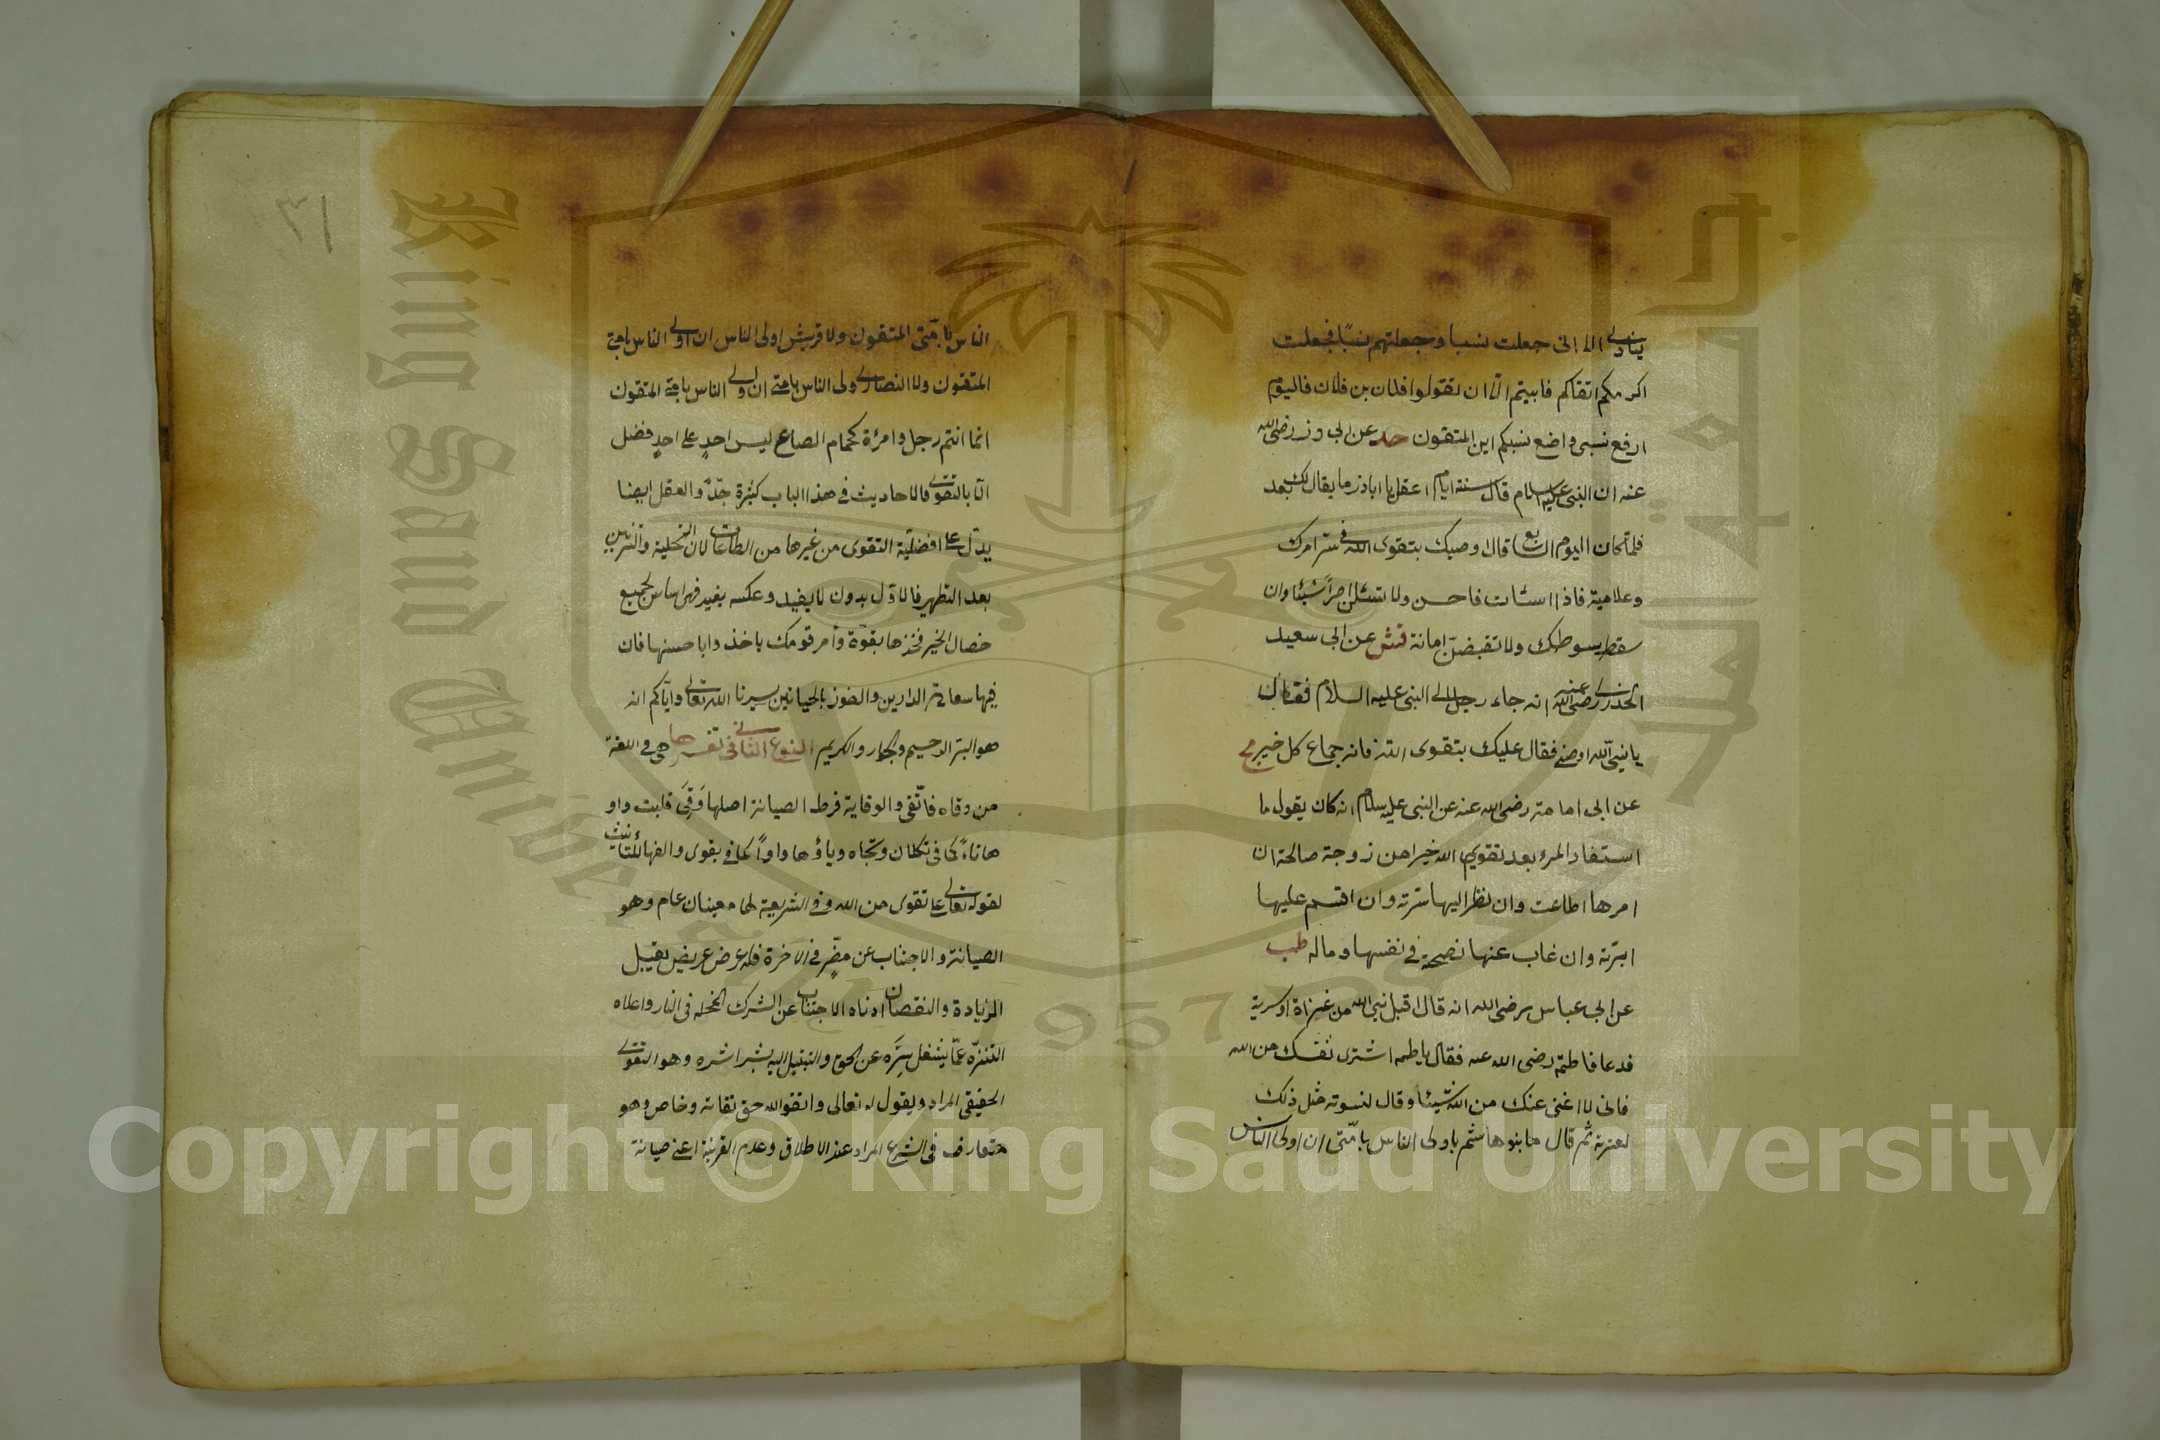 ينادى الا انى جعلت نسبا وجعلتم نسبا فجعلت
اكرمكم اتقاكم فابيتم الا ان تقولوا فلان بن فلان فاليوم
ارفع نسبى واضع نسبكم اين المتقون حد عن ابى ذر رضى الله
عنه ان النبى عليه السلام قال ستة ايام اعقل يا اباذر ما يقال لك بعد
فلما كان اليوم السابع قال اوصيك بتقوى الله فى سر امرك
وعلانيته فاذا اسئات فاحسن ولا تسئلن احدا شيئا وان
سقط سوطك ولا تقبضن امانة عن ابى سعيد
الخدرى رضى الله عنه انه جاء رجل الى النبى عليه السلام فقال
يا نبى الله اوصنى فقال عليك بتقوى الله فانه جماع كل خير مج
عن ابى امامة رضى الله عنه عن النبى عليه سلام انه كان يقول ما
استفاد المرء بعد تقوى الله خيرا من زوجة صالحة ان
امرها اطاعت وان نظر اليها سرته وان اقسم عليها
ابرته وان غاب عنها نصحته فى نفسها وماله طب
عن ابى عباس رضى الله انه قال اقبل نبى الله من غزاة او سرية
فدعا فاطمة رضى الله عنه فقال يا فاطمه اشترى نفسك من الله
فانى لا اغنى عنك من الله شيئا وقال لنسوته مثل ذلك
لعترته ثم قال ما بنوها شم باولى الناس بامتى ان اولى الناس
٣١
الناس بامتى المتقون ولا قريش اولى الناس ان اولى الناس بامتى
المتقون ولا النصارى اولى الناس بامتى ان اولى الناس بامتى المتقون
انما انتم رجل وامرئة كجمام الصاع ليس احد على احد فضل
الا بالتقوى فالاحاديث فى هذا الباب كثيرة جدا والعقل ايضا
يدل على افضلية التقوى من غيرها من الطاعات لان التحلية والتزيين
بعد التطهير فالاول بدون لا يفيد وعكسه يفيد فهى اساس لجميع
خصال الخير فخذها بقوة وأمر قومك ياخذوا باحسنها فان
فيها سعادة الدارين والفوز بالحياتين يسرنا الله تعالى واياكم انه
هو البر الرحيم والجواد والكريم النوع الثانى فى تفسيرها هى فى اللغة
من وقاه فاتقى والوقاية فرط الصيانة اصلها وقى قلبت واو
ها تاء كما فى تكلان وتجاه وياؤها واوا كما فى بقوى والفها للتانيث
لقوله تعالى على تقوى من الله وفى الشريعة لها معينان عام وهو
الصيانة والاجتناب عن مضر فى الاخرة فله عرض عريض يقبل
الزيادة والنقصان ادناه الاجتناب عن الشرك المخلد فى النار واعلاه
التنزه عما يشغل سره عن الحق والتبتل اليه بشراشره وهو التقوى
الحقيقى المراد وبقول له تعالى واتقوا الله حق تقاته وخاص وهو
متعارف فى الشرع المراد عند الاطلاق وعدم القرينة اعنى صيانة
King Saud University
1957
Copyright © King Saud University